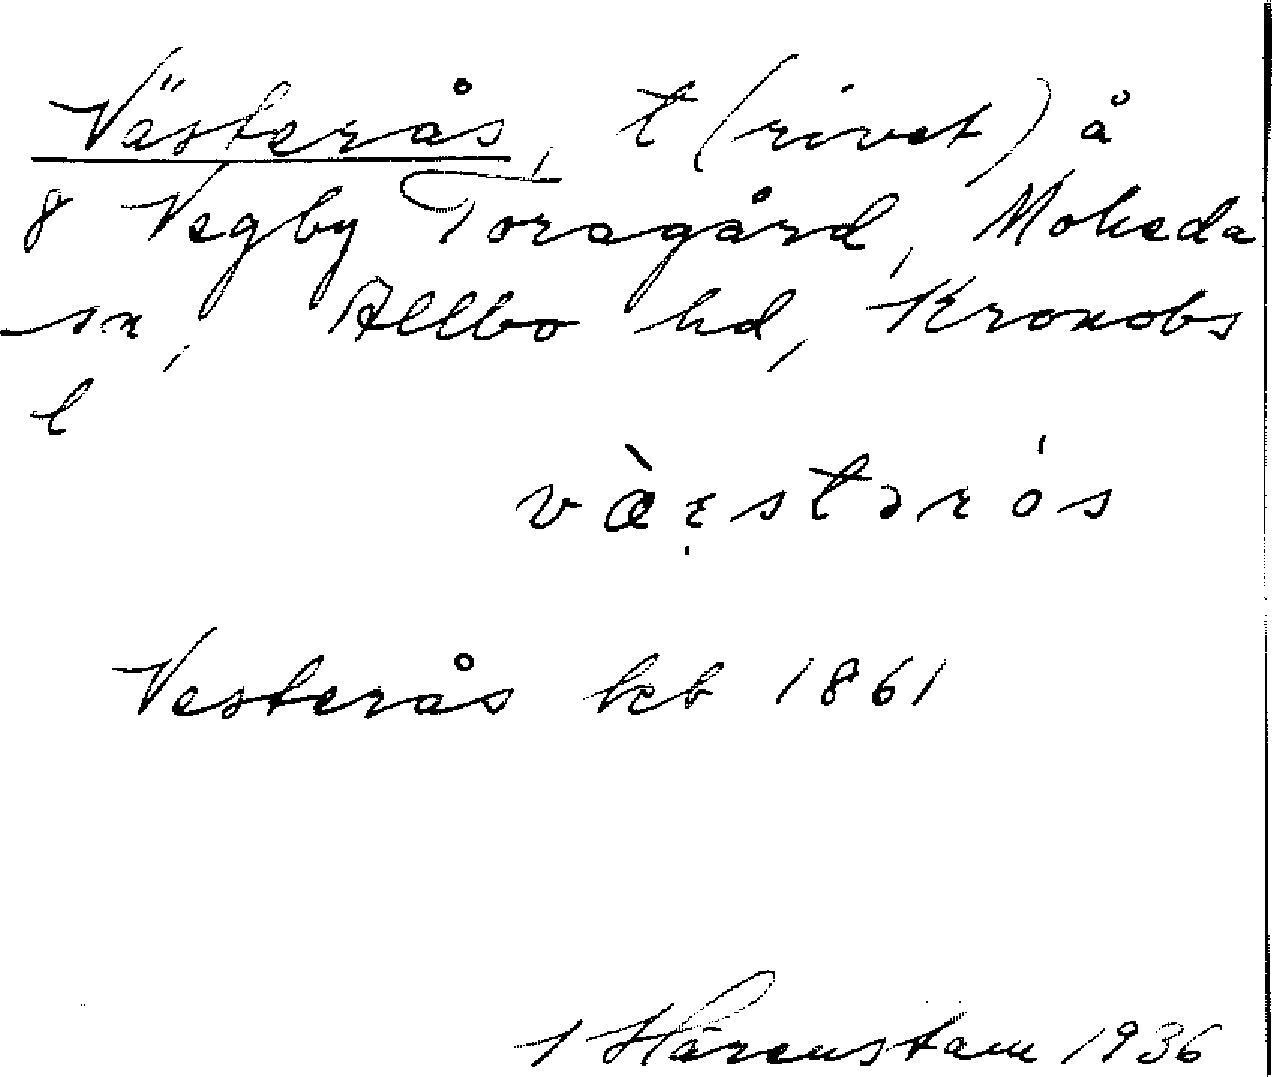 Västerås, t (rivet) å
8 Vegby Toragård, Moheda
sn, Allbo hd, Kronobs
l
væ̀ːstərós
Vesterås kb 1861
1 Härenstam 1936